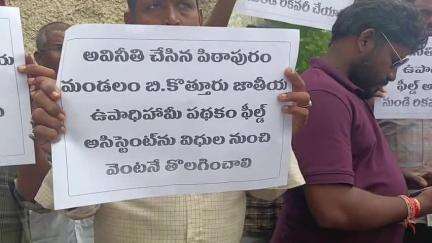 అవినీతి చేసిన పిఠాపురం
మండలం బి.కొత్తూరు జాతీయ
ఉపాధిహామీ పథకం ఫీల్డ్
అసిస్టెంట్‌ను విధుల నుంచి
వెంటనే తొలగించాలి
రికవరీ చేయా
ఉపా
ఫీల్డ్ అ
నుండి రికవ